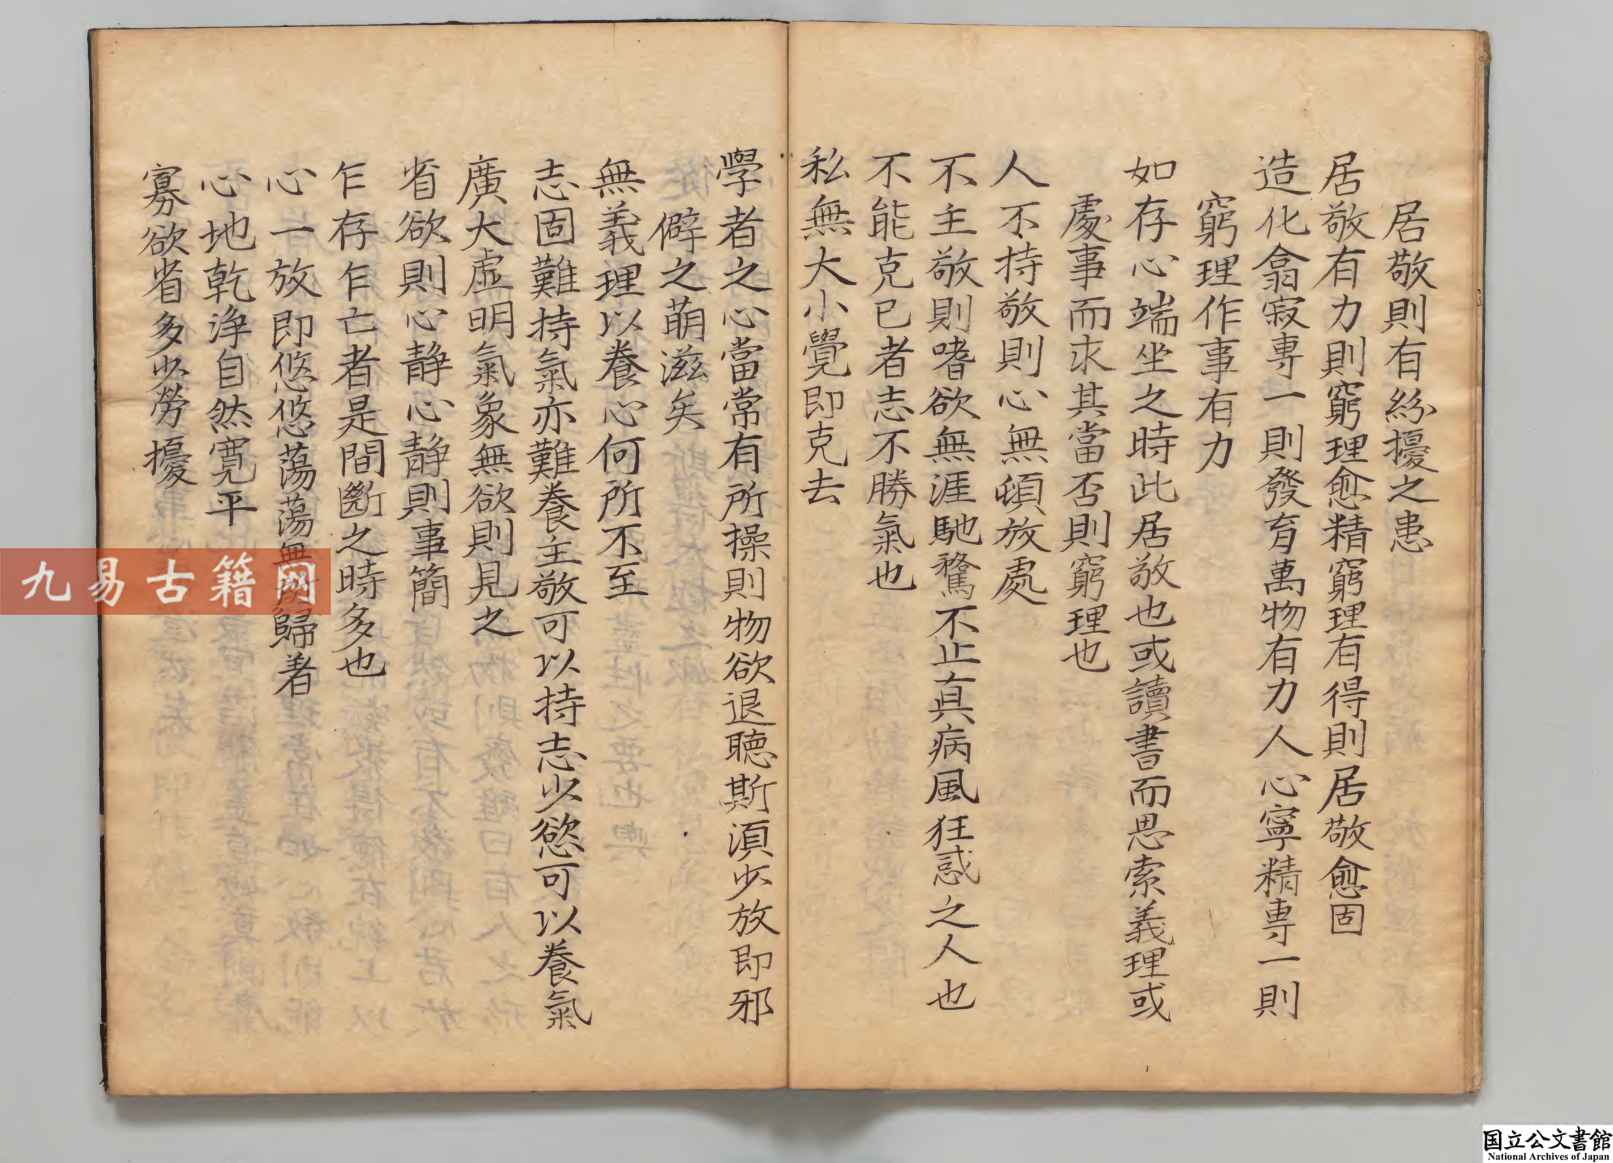 居敬則有紛擾之患
居敬有力則窮理愈精窮理有得則居敬愈固
造化翕寂專一則發育萬物有力人心寧精專一則
窮理作事有力
如存心端坐之時此居敬也或讀書而思索義理或
處事而求其當否則窮理也
人不持敬則心無頓放處
不主敬則嗜欲無涯馳騖不止真病風狂惑之人也
不能克已者志不勝氣也
私無大小覺即克去
學者之心當常有所操則物欲退聽斯須少放即邪
僻之萌滋矣
無義理以養心何所不至
志固難持氣亦難養主敬可以持志少慾可以養氣
廣大虛明氣象無欲則見之
省欲則心静心静則事簡
乍存乍亡者是間斷之時多也
心一放即悠悠蕩蕩無所歸着
心地乾淨自然寬平
寡欲省多少勞擾
九易古籍网
国立公文書館
National Archives of Japan